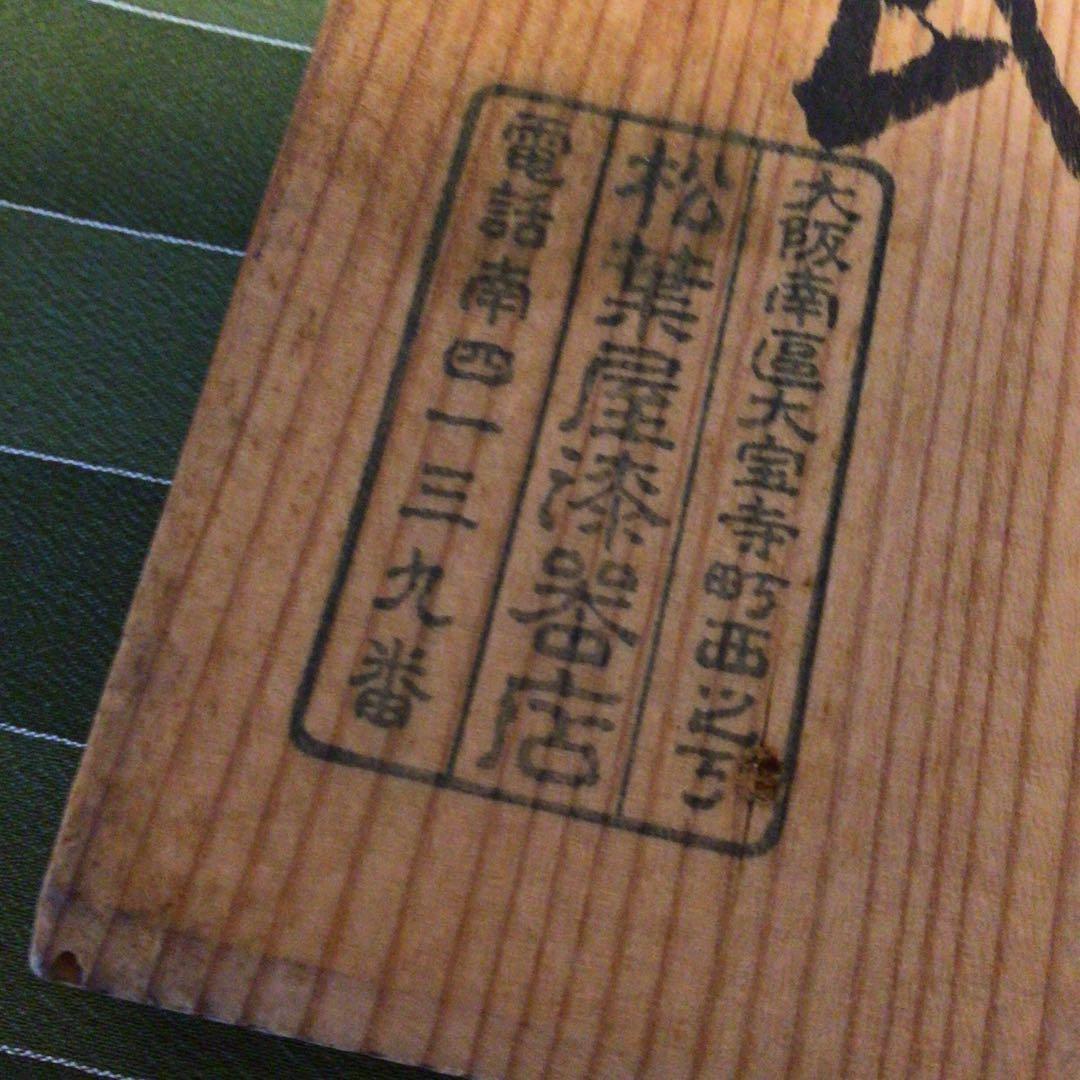 大阪南區大宝寺町西之丁
松葉屋漆器店
電話南四一三九番